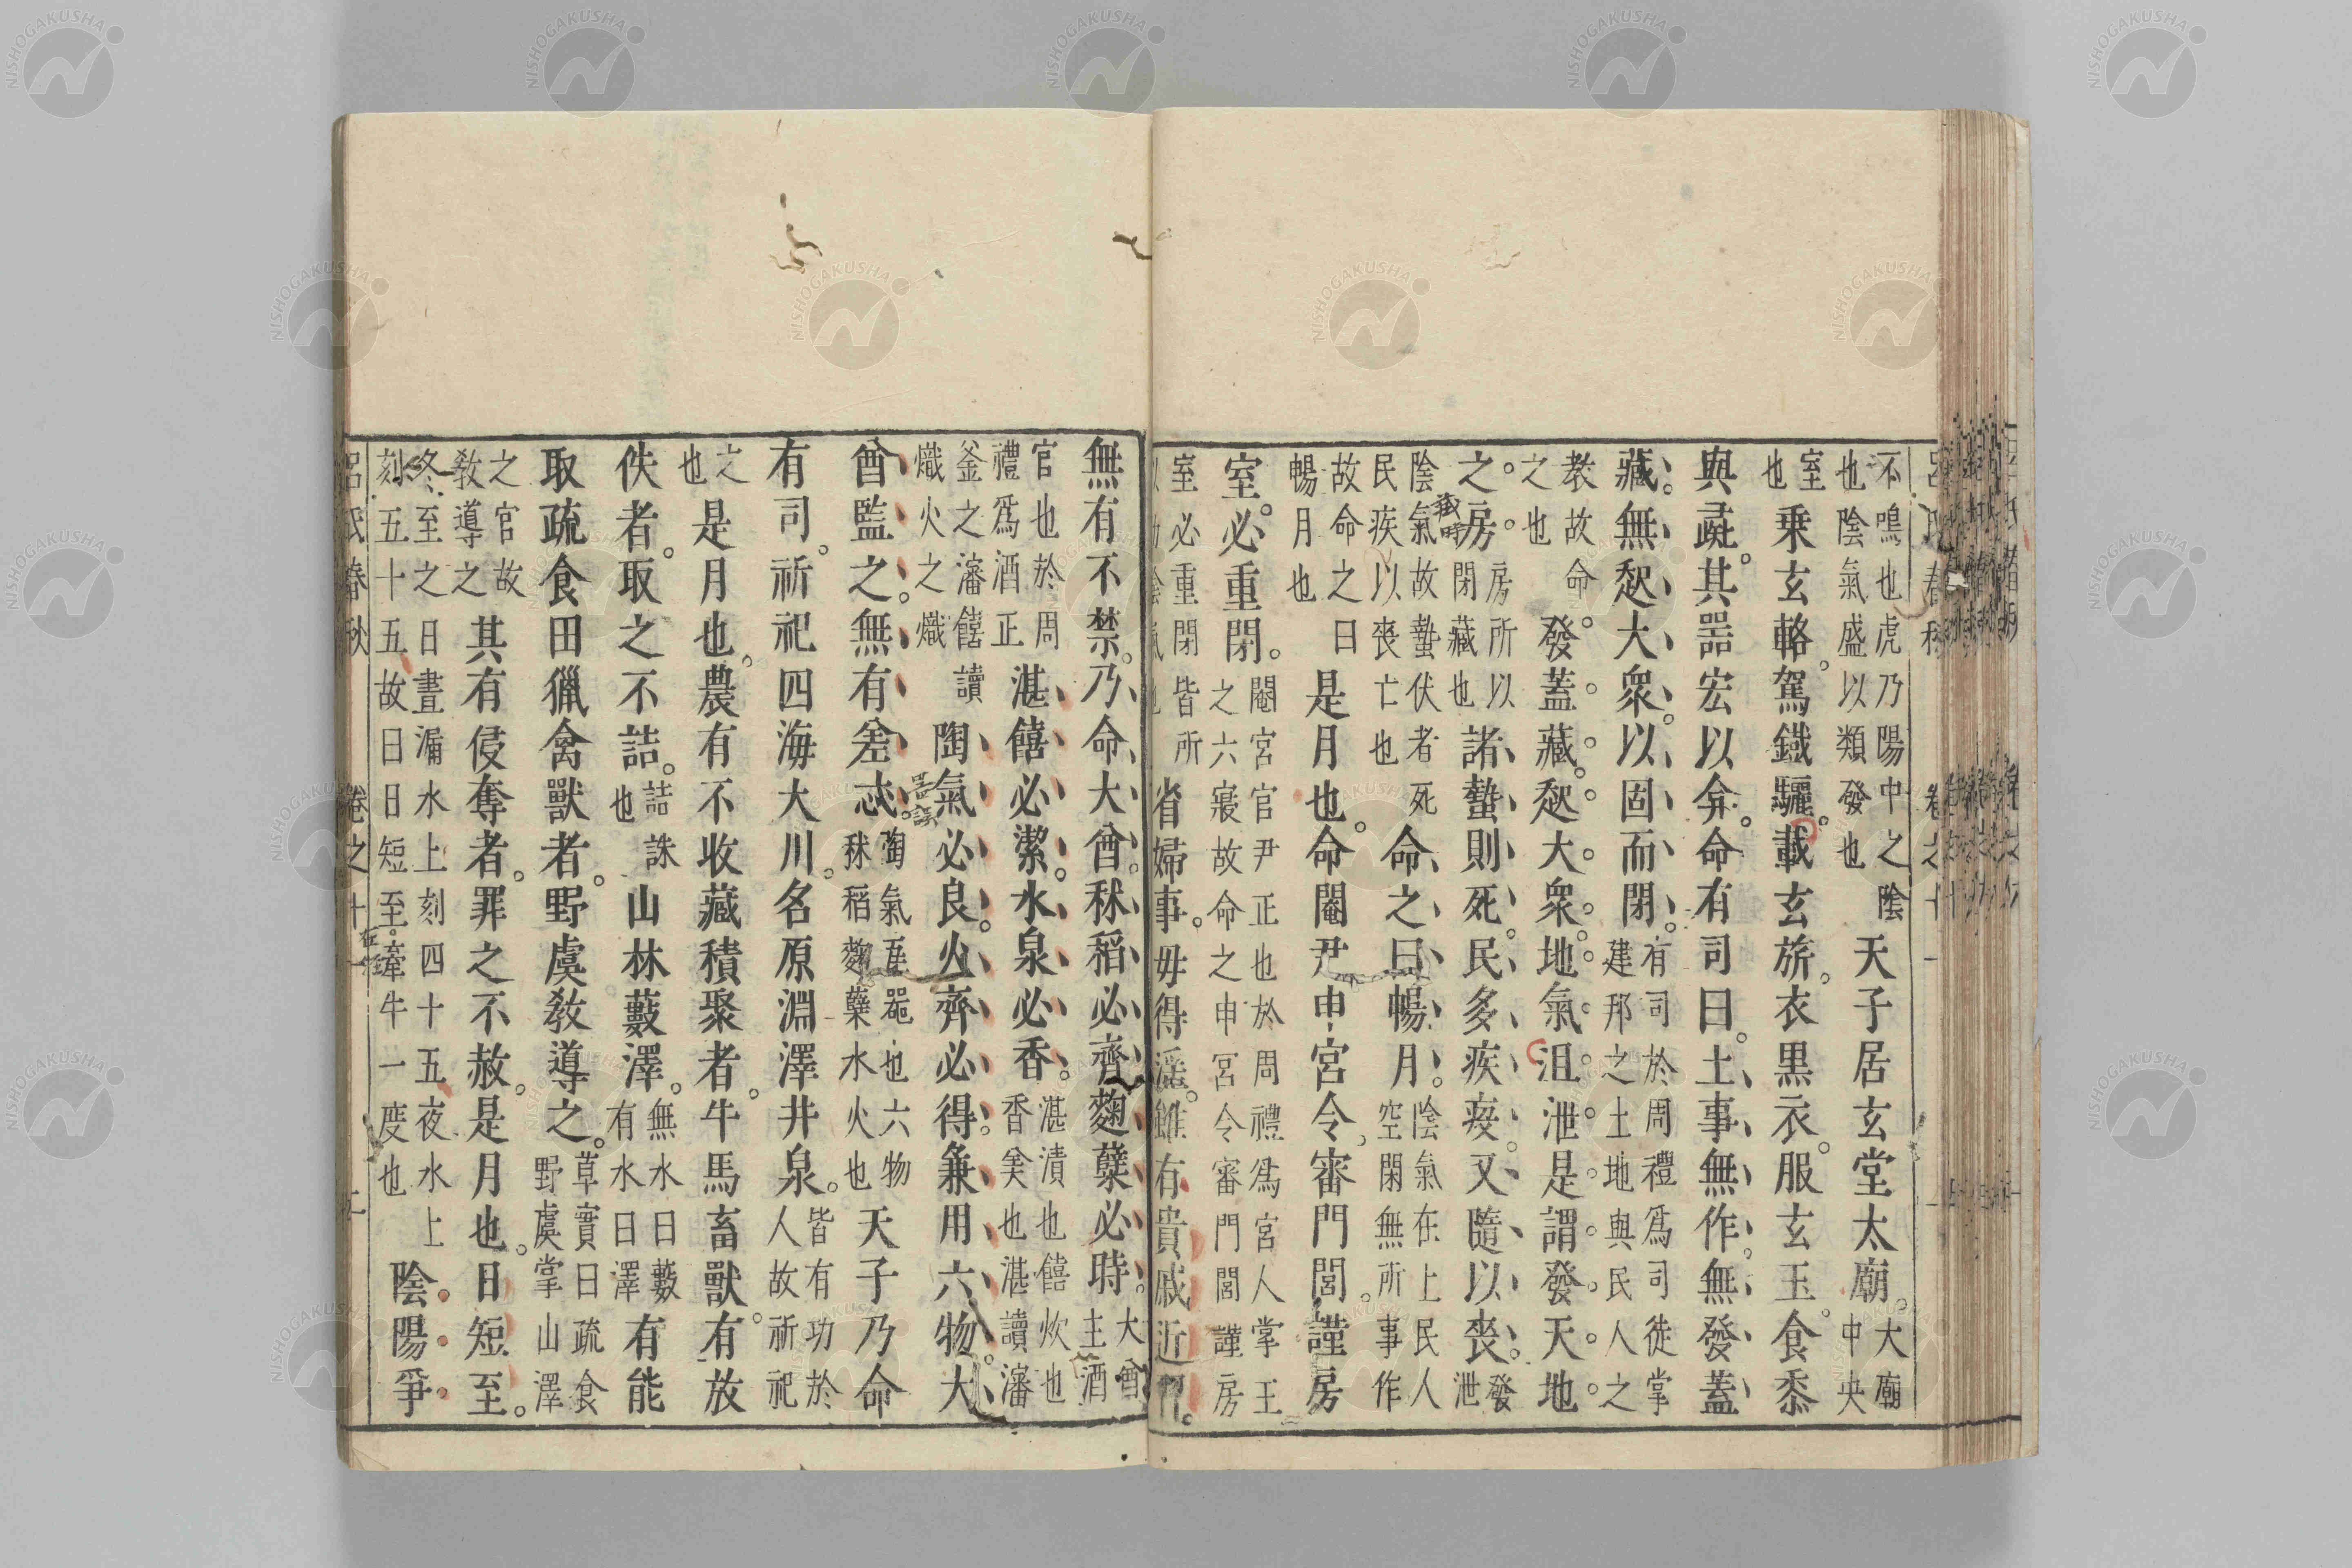 呂氏春秋 卷之十一
不鳴也虎乃陽中之陰
也陰氣盛以類發也
天子居玄堂太廟。
大廟
中央
室
也
乗玄輅。駕鐵驪。載玄旂。衣黑衣。服玄玉。食黍
與彘。其噐宏以弇。命有司曰。土事無作。無發蓋
藏。無起大衆。以固而閉。
有司於周禮爲司徒掌
建邦之土地與民人之
教故命
之也
發蓋藏。起大衆。地氣沮泄。是謂發天地
之房。
房所以
閉藏也
諸蟄則死。民多疾疫。又隨以喪。
發
泄
陰氣故蟄伏者死
民疾以喪亡也
命之曰暢月。
陰氣在上民人
空閑無所事作
故命之曰
暢月也
是月也。命閹尹申宮令。審門閭。謹房
室。必重閉。
閹宮官尹正也於周禮爲宮人掌王
之六寢故命之申宮令審門閭謹房
室必重閉皆所
以助陰氣也
省婦事。毋得淫。雖有貴戚近習。
無有不禁。乃命大酋。秫稻必齊。麴蘖必時。
大酋
主酒
官也於周
禮爲酒正
湛饎必潔。水泉必香。
湛漬也饎炊也
香美也湛讀瀋
釜之瀋饎讀
熾火之熾
陶氣必良。火齊必得。兼用六物。大
酋監之。無有差忒。
陶氣瓦噐也六物
秫稻麴蘖水火也
天子乃命
有司。祈祀四海大川。名原淵澤井泉。
皆有功於
人故祈祀
之
也
是月也。農有不收藏積聚者。牛馬畜獸。有放
佚者。取之不詰。
詰誅
也
山林藪澤。
無水曰藪
有水曰澤
有能
取疏食田獵禽獸者。野虞教導之。
草實曰疏食
野虞掌山澤
之官故
教導之
其有侵奪者。罪之不赦。是月也。日短至。
冬至之日晝漏水上刻四十五夜水上
刻五十五故曰日短至牽牛一度也
陰陽爭
呂氏春秋 卷之十一 二